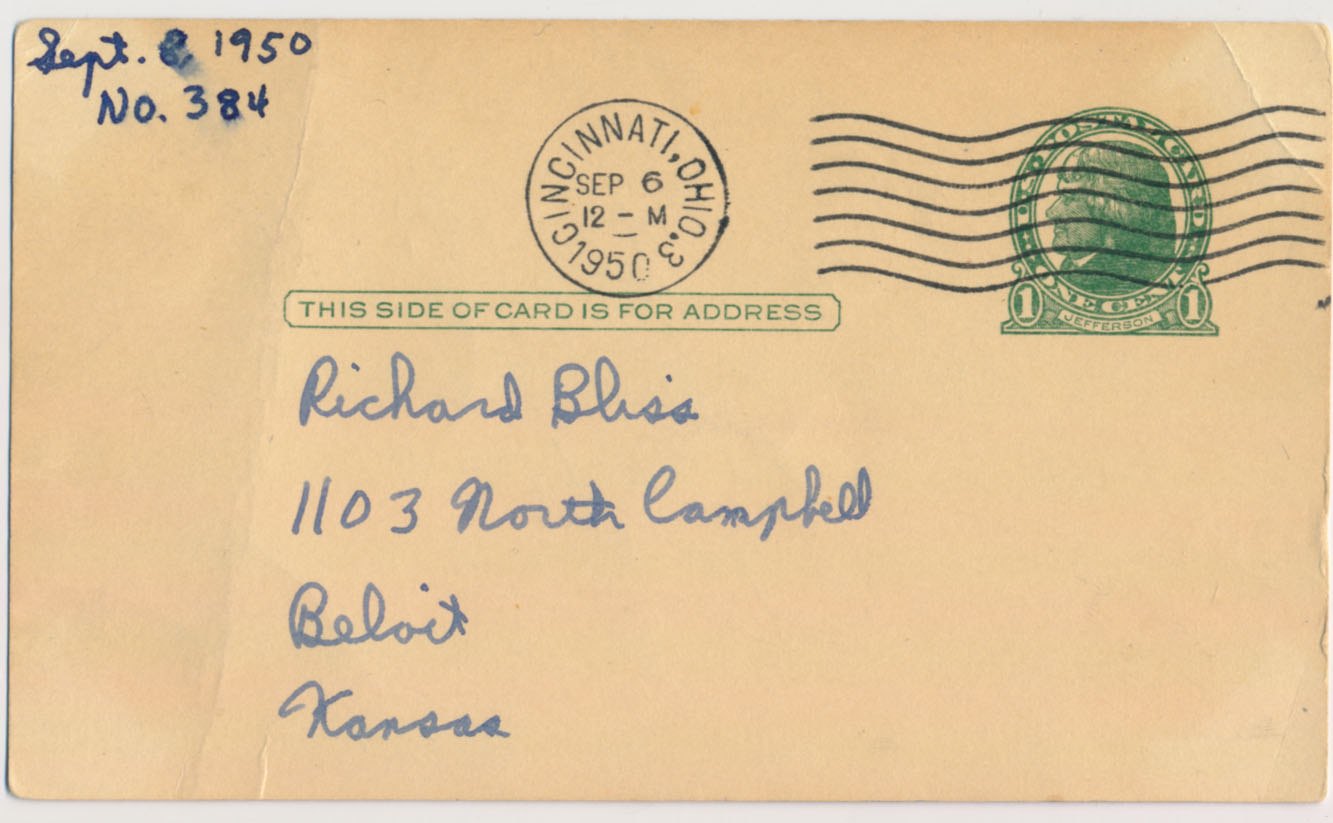 Sept. 8, 1950
No. 384
CINCINNATI, OHIO. 3
SEP 6
12 - M
1950
U.S. POSTAL CARD
ONE CENT
1 JEFFERSON 1
THIS SIDE OF CARD IS FOR ADDRESS
Richard Bliss
1103 North Campbell
Beloit
Kansas